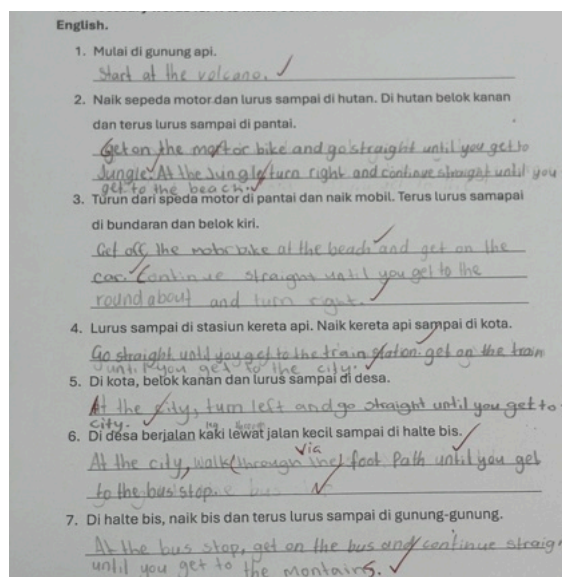 English.
1. Mulai di gunung api.
Start at the volcano.
2. Naik sepeda motor dan lurus sampai di hutan. Di hutan belok kanan
dan terus lurus sampai di pantai.
Get on the motor bike and go straight until you get to
Jungle. At the Jungle turn right and continue straight until you
get to the beach.
3. Turun dari speda motor di pantai dan naik mobil. Terus lurus samapai
di bundaran dan belok kiri.
Get off the motorbike at the beach and get on the
car. Continue straight until you get to the
roundabout and turn right.
4. Lurus sampai di stasiun kereta api. Naik kereta api sampai di kota.
Go straight until you get to the train station. get on the train
until you get to the city.
5. Di kota, belok kanan dan lurus sampai di desa.
At the city, turn left and go straight until you get to
city.
6. Di desa berjalan kaki lewat jalan kecil sampai di halte bis.
Via
At the city, walk (through the) foot Path until you get
to the bus stop.
7. Di halte bis, naik bis dan terus lurus sampai di gunung-gunung.
At the bus stop, get on the bus and continue straig
until you get to the montains.